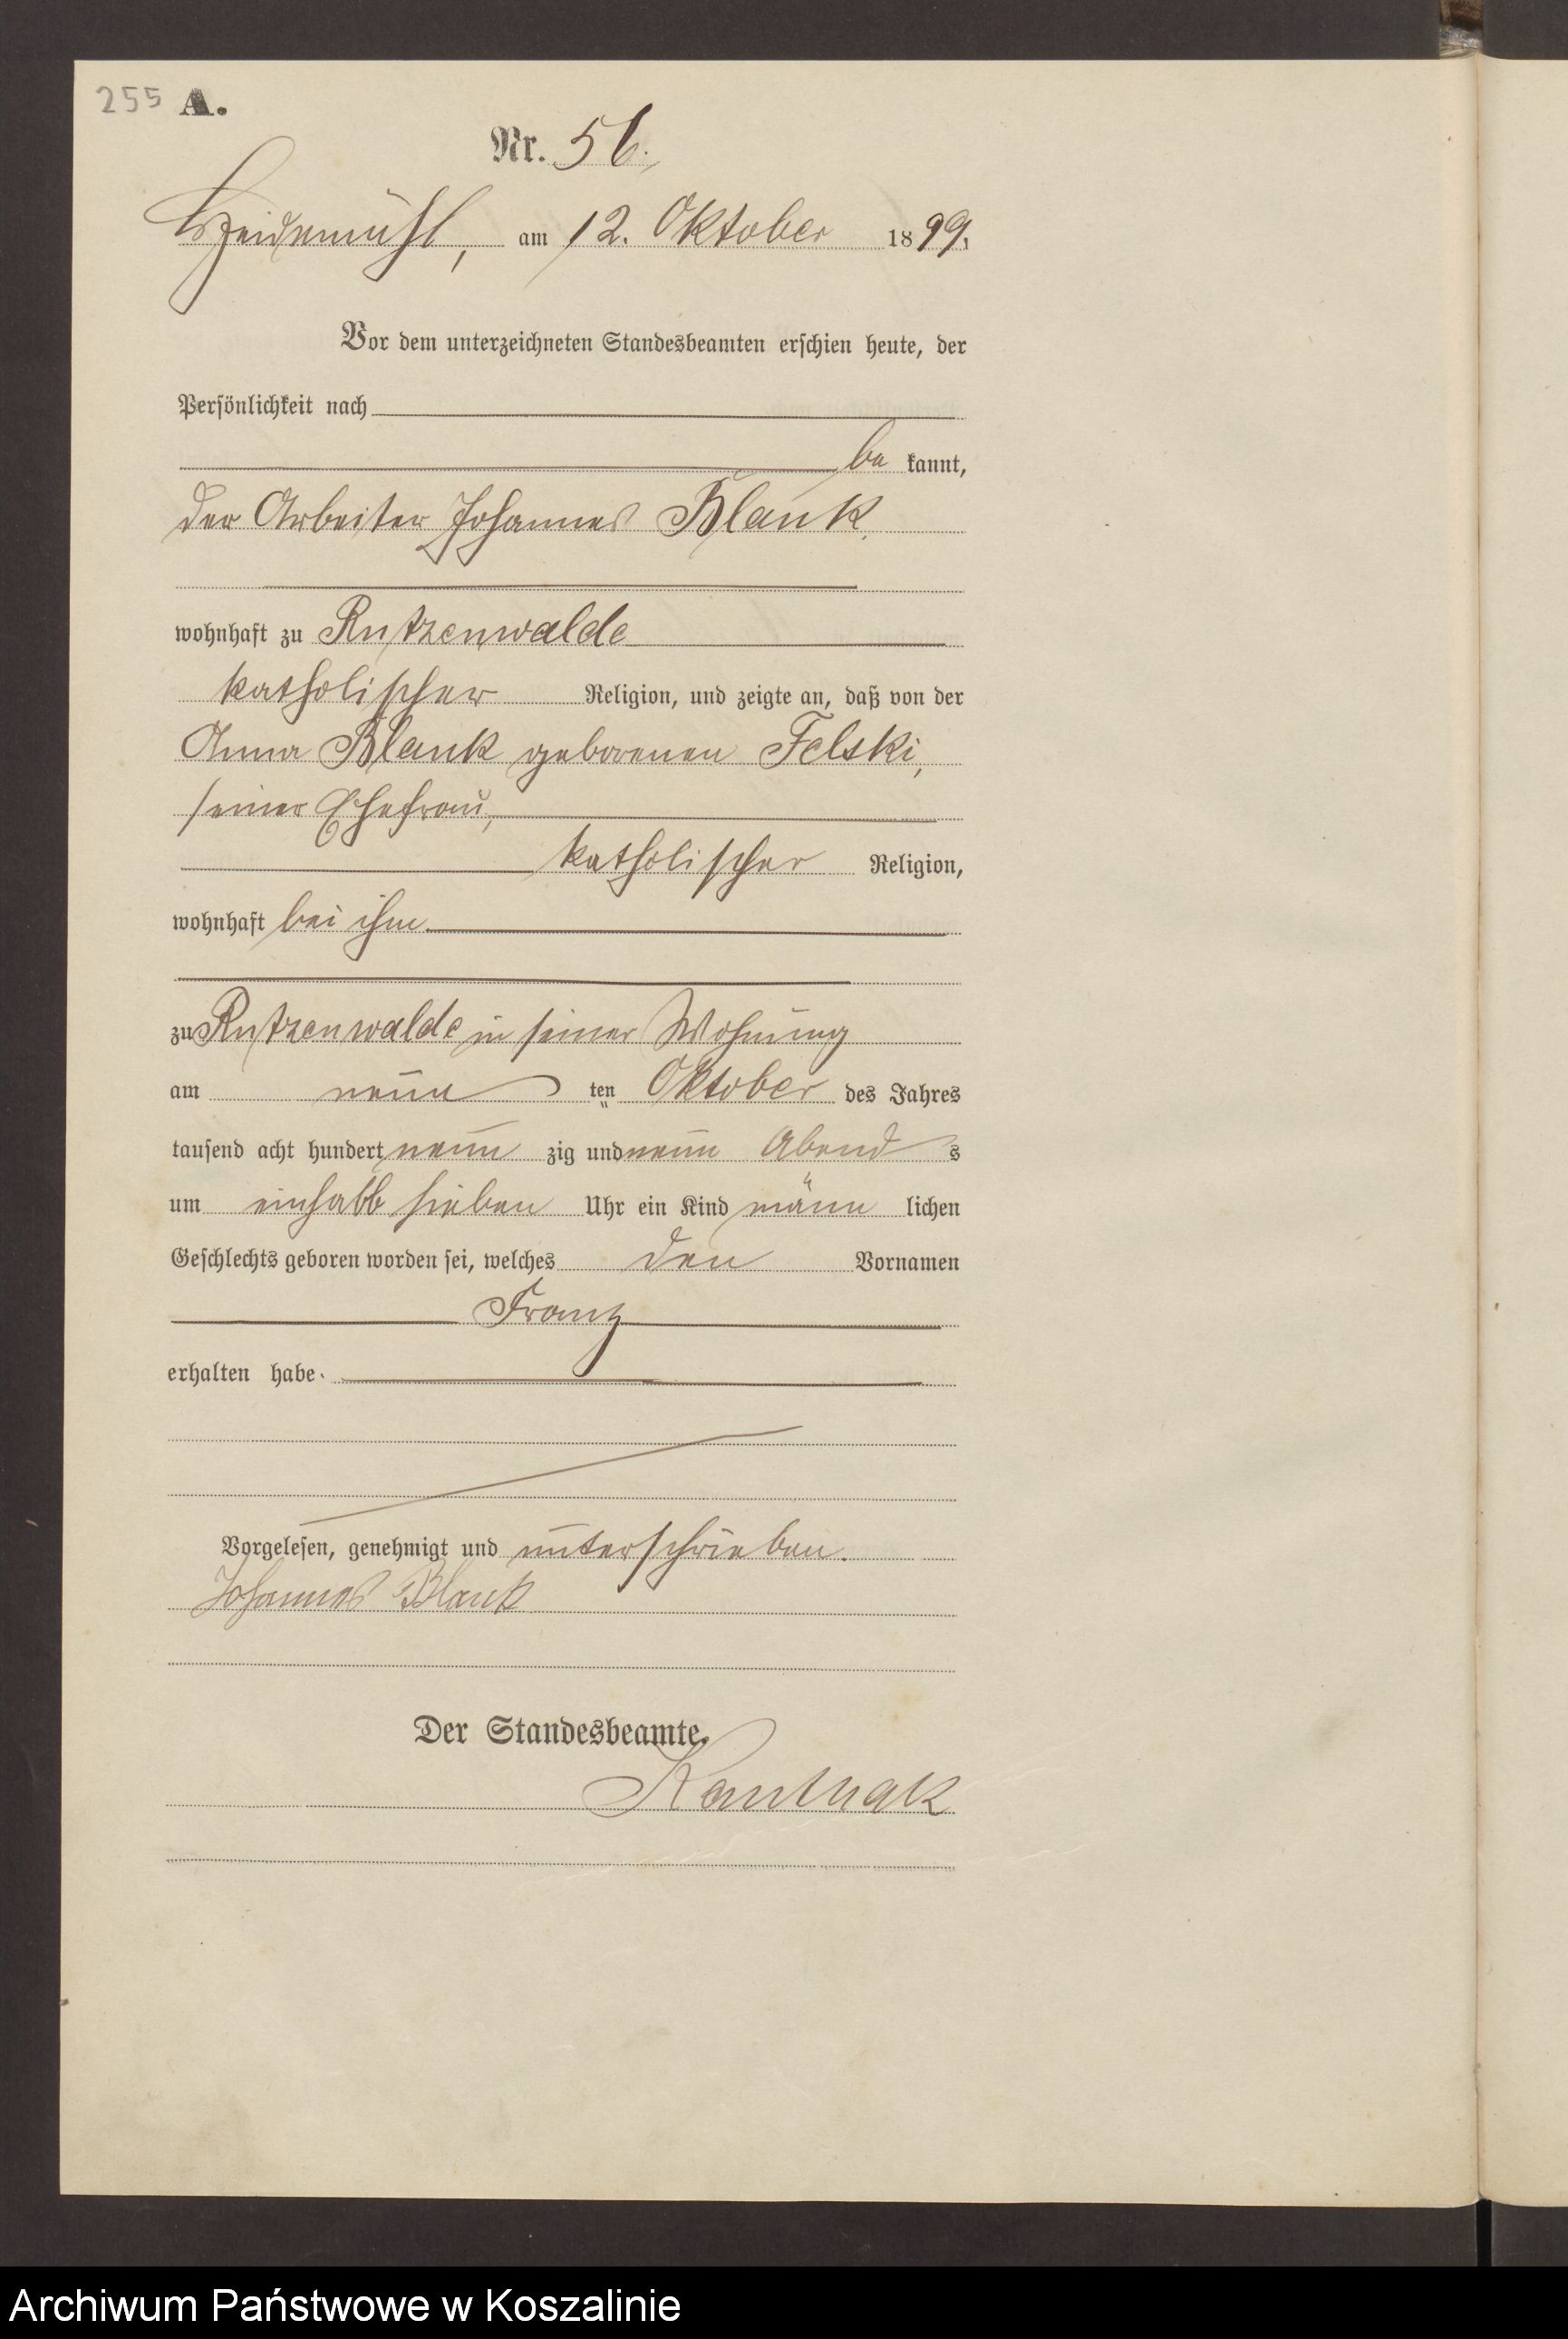 255 A.
Nr. 56.
Heidemühl, am 12. Oktober 1899.
Vor dem unterzeichneten Standesbeamten erschien heute, der
Persönlichkeit nach
be kannt,
der Arbeiter Johannes Blank,
wohnhaft zu Rutzenwalde
katholischer Religion, und zeigte an, daß von der
Anna Blank geborenen Felski,
seiner Ehefrau,
katholischer Religion,
wohnhaft bei ihm
zu Rutzenwalde in seiner Wohnung
am neun ten Oktober des Jahres
tausend acht hundert neun zig und neun Abend s
um einhalb sieben Uhr ein Kind männ lichen
Geschlechts geboren worden sei, welches den Vornamen
Franz
erhalten habe.
Vorgelesen, genehmigt und unterschrieben.
Johannes Blank
Der Standesbeamte.
Archiwum Państwowe w Koszalinie